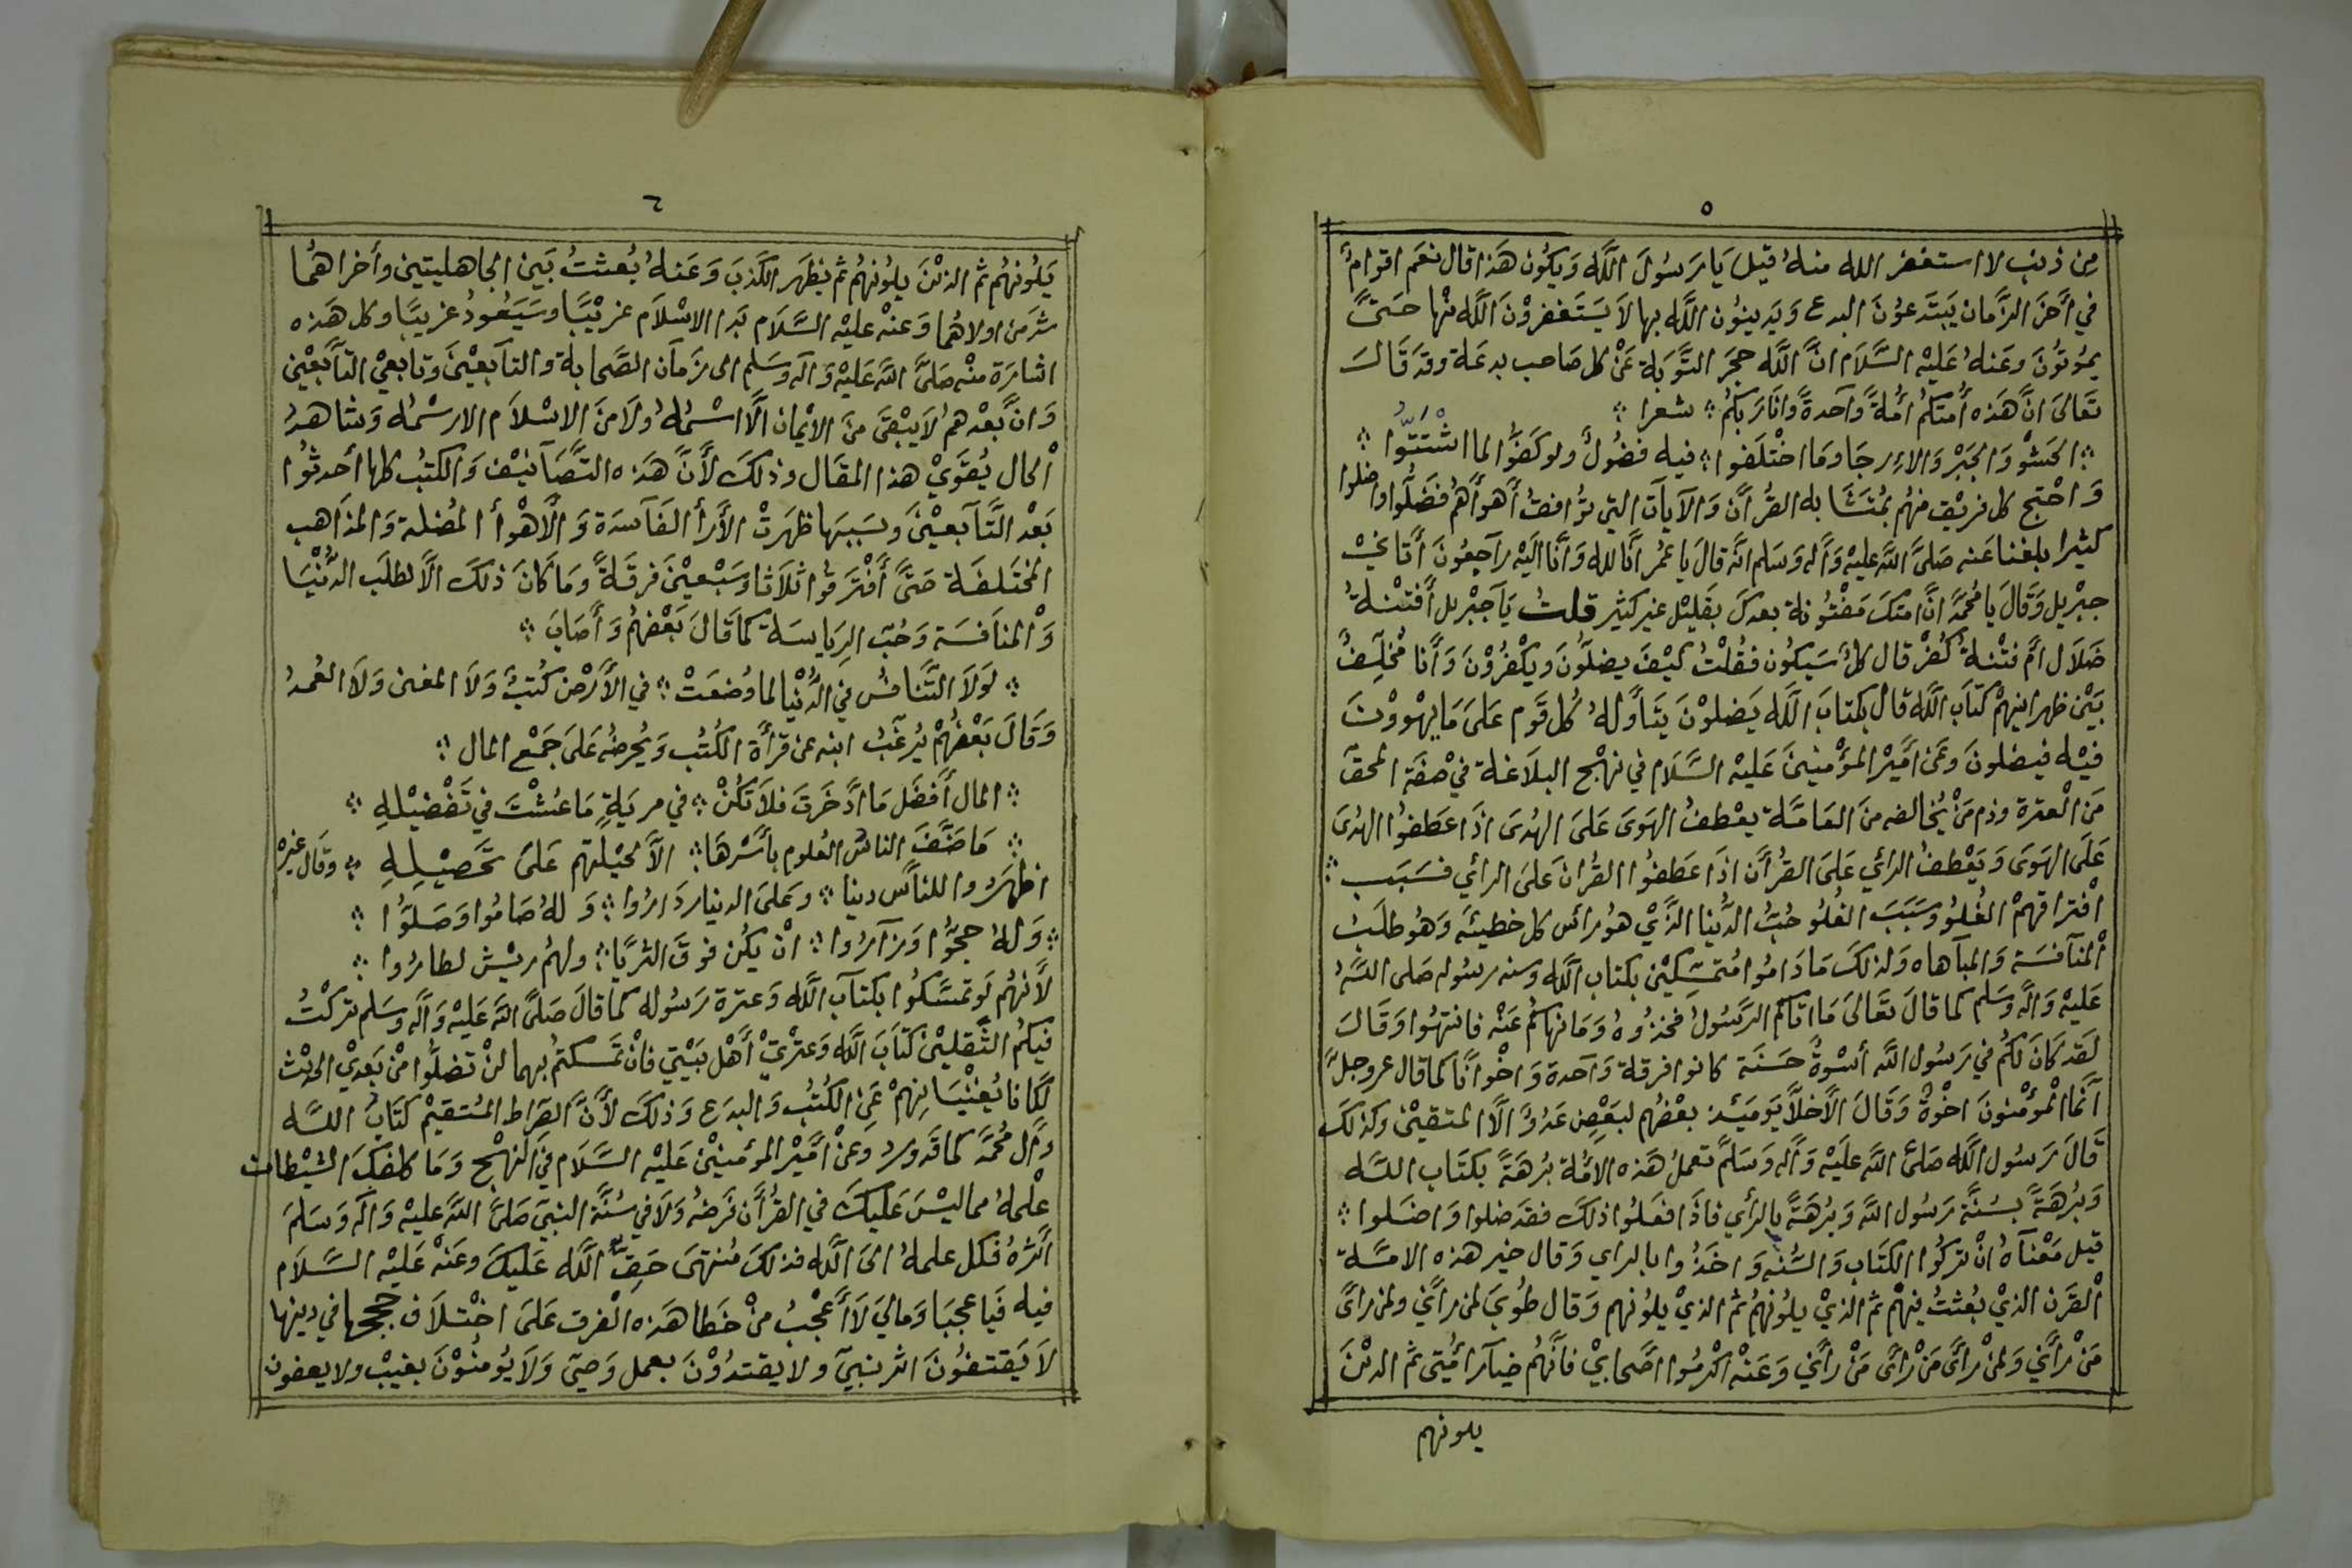 ٥
من ذنب لا استغفر الله منه قيل يا رسول الله ويكون هذا قال نعم اقوام
في أخر الزمان يبتدعون البدع ويدينون الله بها لا يستغفرون الله منها حتى
يموتون وعنه عليه السلام ان الله حجر التوبة عن كل صاحب بدعة وقد قال
تعالى ان هذه أمتكم أمة وآحدة وانا ربكم ؞ شعرا ؞
؞ الحشو والجبر والارجا وما اختلفوا ؞ فيه فضول ولو كفوا لما اشتتوا ؞
واحتج كل فريق منهم بمتشابه القرأن والآيات التي توافق أهوأهم فضلوا واضلوا
كثيرا بلغنا عنه صلى الله عليه وأله وسلم انه قال يا عمر انا لله وأنا اليه رآجعون أتاني
جبريل وقال يا محمد ان امتك مفتونة بعدك بقليل غير كثير قلت يآ جبريل أفتنة
ضلال ام فتنة كفر قال كل سيكون فقلت كيف يضلون ويكفرون وأنا مخلف
بين ظهرانيهم كتاب الله قال بكتاب الله يضلون يتأوله كل قوم على ما يهوون
فيه فيضلون وعن أمير المؤمنين عليه السلام في نهج البلاغة في صفة المحق
من العترة وذم من يخالفه من العامة يعطف الهوى على الهدى اذا عطفوا الهدى
على الهوى ويعطف الرأي على القرأن اذا عطفوا القران على الرأي فسبب ؞
افتراقهم الغلو وسبب الغلو حب الدنيا الذي هو رأس كل خطيئه وهو طلب
المنآفسة والمبآهاه ولذلك ما داموا متمسكين بكتاب الله وسنه رسوله صلى الله
عليه وأله وسلم كما قال تعالى ما اتاكم الرسول فخذوه وما نهاكم عنه فانتهوا وقال
لقد كان لكم في رسول الله أسوة حسنة كانوا فرقة وآحدة واخوانا كما قال عز وجل
آنما المؤمنون اخوة وقال الاخلا يومئذ بعضهم لبعض عدو الا المتقين وكذلك
قال رسول الله صلى الله عليه وأله وسلم تعمل هذه الامة برهة بكتاب الله
وبرهة بسنة رسول الله وبرهة بالرأي فاذا فعلوا ذلك فقد ضلوا واضلوا ؞
قيل معنآه ان تركوا الكتاب والسنه واخذوا بالراي وقال خير هذه الامة
القرن الذي بعثت فيهم ثم الذي يلونهم ثم الذي يلونهم وقال طوبى لمن رأني ولمن رأى
من رأني ولمن رأى من رأى من رأني وعنه اكرموا اصحابي فانهم خيآر امتي ثم الذين
يلونهم
٦
يلونهم ثم الذين يلونهم ثم يظهر الكذب وعنه بعثت بين الجاهليتين وأخراهما
شر من اولاهما وعنه عليه السلام بدا الاسلام غريبا وسيعود غريبا وكل هذه
اشارة منه صلى الله عليه وآله وسلم الى زمآن الصحابة والتآبعين وتابعي التآبعين
وان بعدهم لا يبقى من الايمان الا اسمه ولا من الاسلام الا رسمه وشاهد
الحال يقوي هذا المقال وذلك لأن هذه التصآنيف والكتب كلها أحدثوا
بعد التآبعين وبسببها ظهرت الأرأ الفآسدة والأهوأ المضلة والمذاهب
المختلفة حتى أفترقوا ثلاثا وسبعين فرقة وما كان ذلك الا لطلب الدنيا
والمنافسة وحب الرياسة كما قال بعضهم وأصاب ؞
؞ لولا التنافس في الدنيا لما وضعت ؞ في الأرض كتب ولا المغنى ولا العمد
وقال بعضهم يرغب ابنه عن قرأة الكتب ويحرضه على جمع المال ؞
؞ المال أفضل ما ادخرت فلا تكن ؞ في مرية ما عشت في تفضيله ؞
؞ ما صنف الناس العلوم بأسرها ؞ الا لحيلتهم على تحصيله ؞ وقال غيره
اظهروا للنآس دينا ؞ وعلى الدنيار داروا ؞ وله صاموا وصلوا ؞
؞ وله حجوا وزآروا ؞ ان يكن فوق الثريا ؞ ولهم ريش لطاروا ؞
لأنهم لو تمسكوا بكتآب الله وعترة رسوله كما قال صلى الله عليه وأله وسلم تركت
فيكم الثقلين كتاب الله وعترتي أهل بيتي فان تمسكتم بهما لن تضلوا من بعدي الحديث
لكانا يغنيانهم عن الكتب والبدع وذلك لأن الصراط المستقيم كتاب الله
وأل محمد كما قد ورد وعن أمير المؤمنين عليه السلام في النهج وما كلفك الشيطان
علمه مما ليس عليك في القرأن فرضه ولا في سنة النبي صلى الله عليه وآله وسلم
أثره فكل علمه الى الله فذلك منتهى حق الله عليك وعنه عليه السلام
فيه فيا عجبا ومالي لا أعجب من خطا هذه الفرق على اختلاف حججها في دينها
لا يقتفون اثر نبي ولا يقتدون بعمل وصي ولا يؤمنون بغيب ولا يعفون